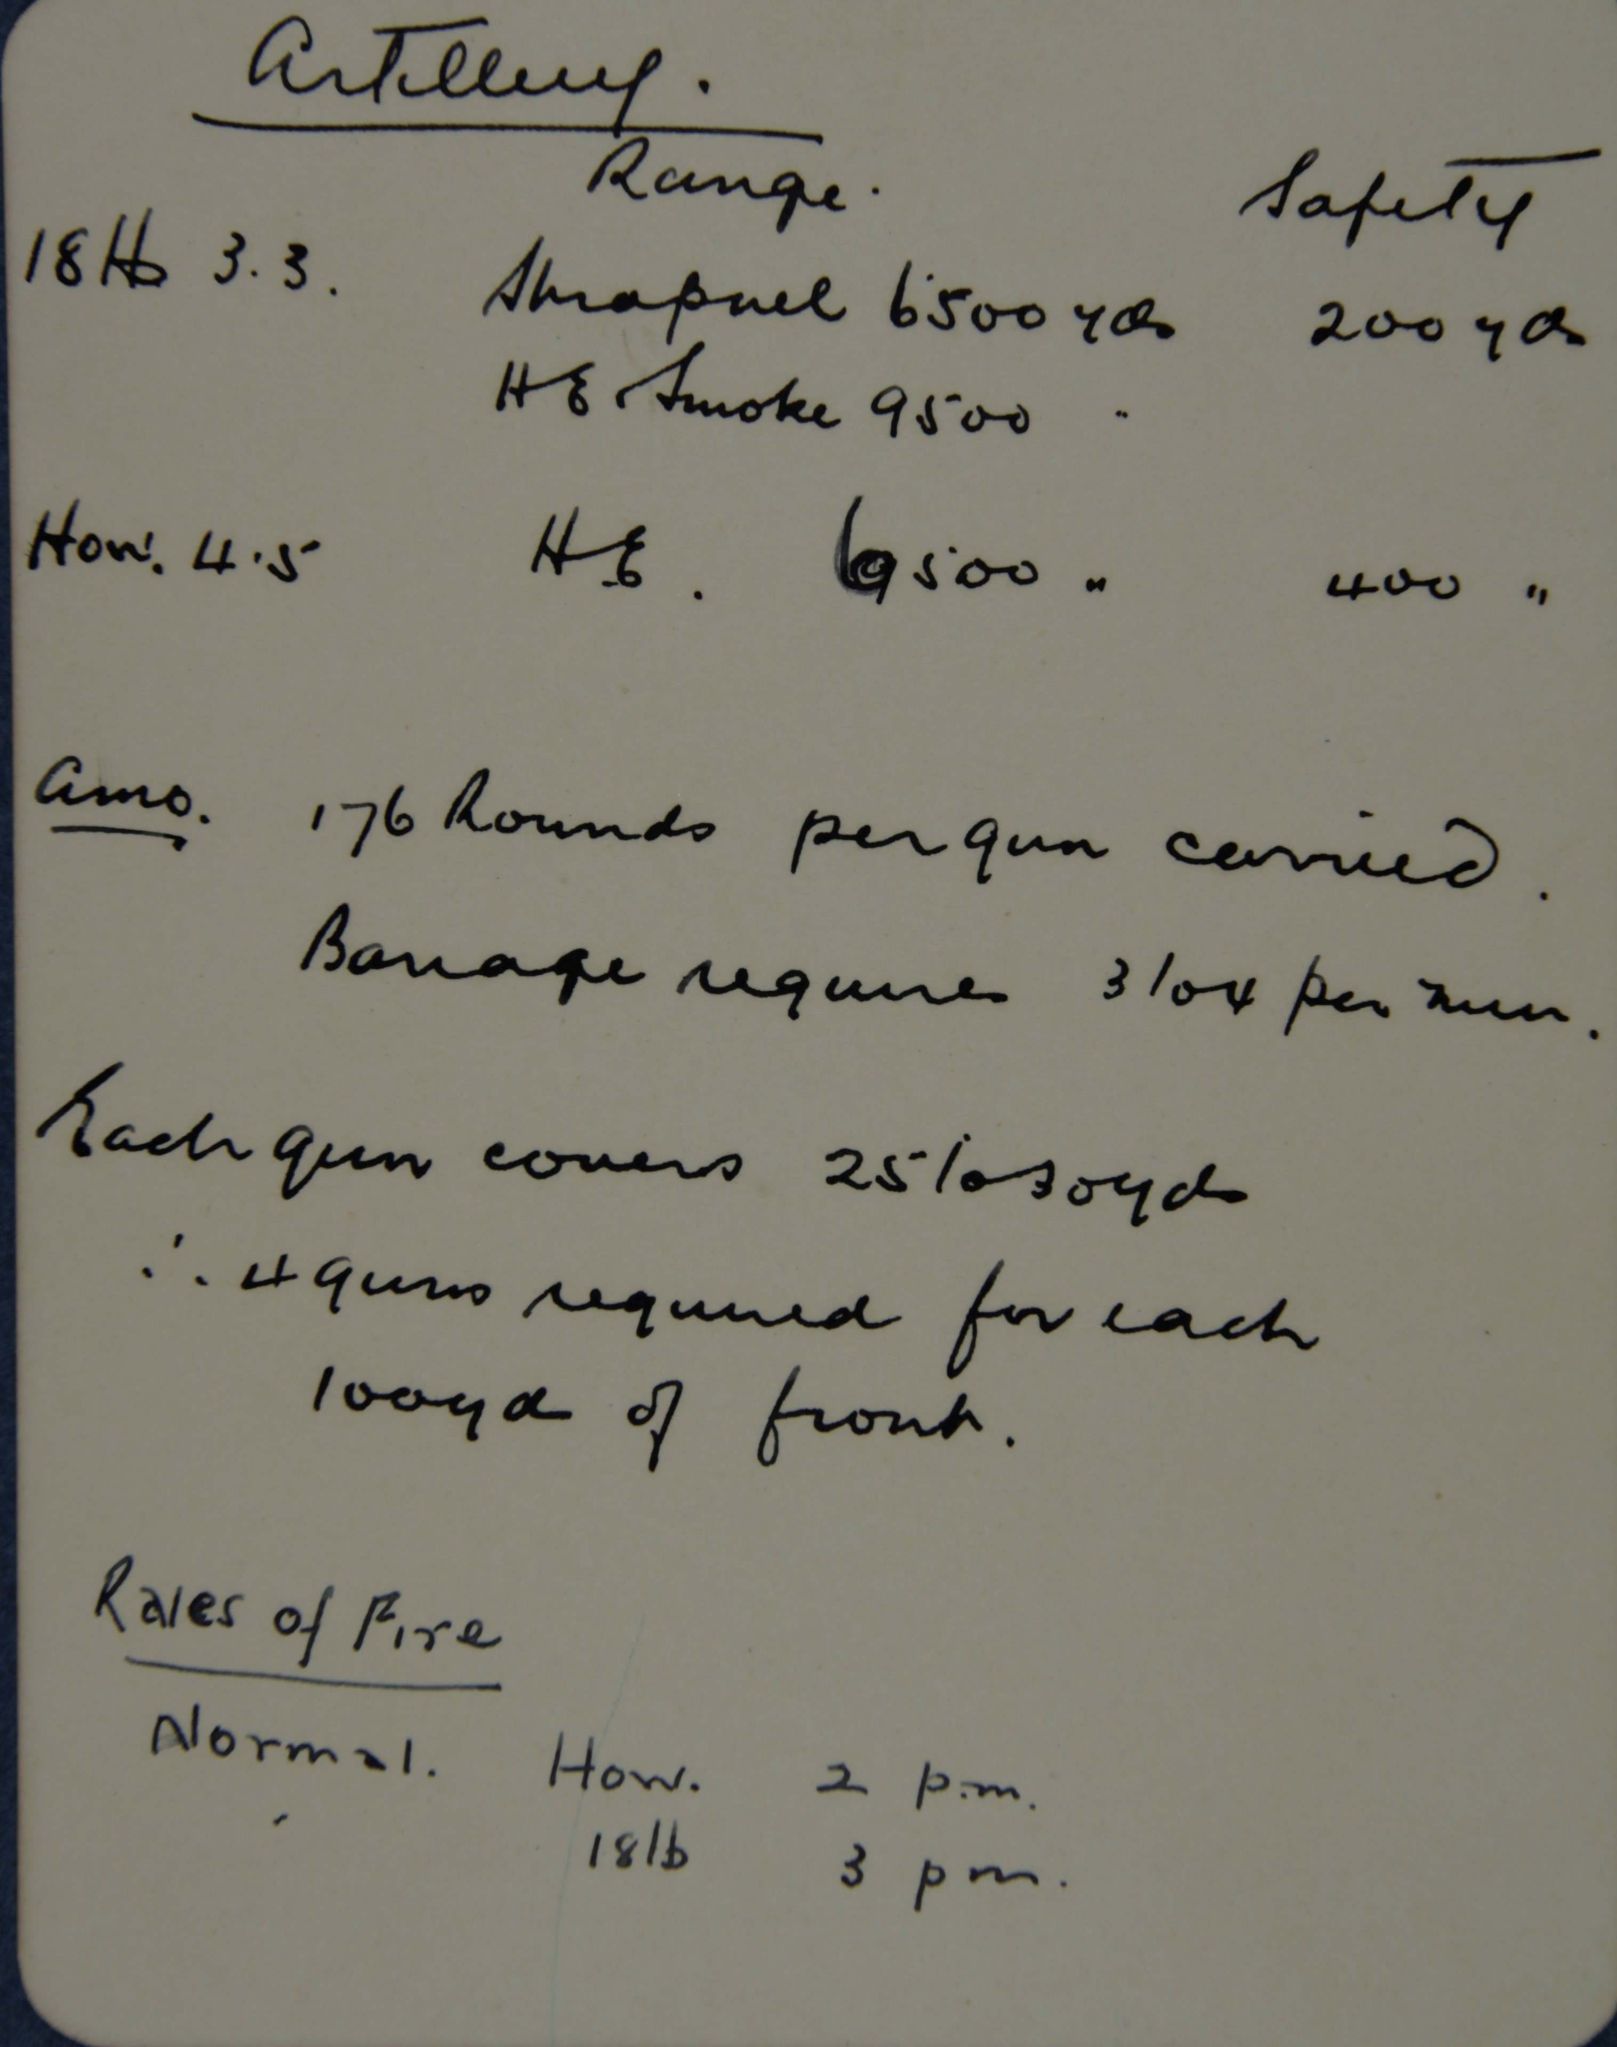 Artillery.
Range. Safety
18 lb 3.3. Shrapnel 6500 yds 200 yds
HE Smoke 9500 "
How. 4.5 HE. 6500 " 400 "
Amo. 176 Rounds per gun carried.
Barrage requires 3 to 4 per min.
Each gun covers 25 to 30 yds
∴ 4 guns required for each
100 yd of front.
Rates of Fire
Normal. How. 2 p.m.
18lb 3 pm.